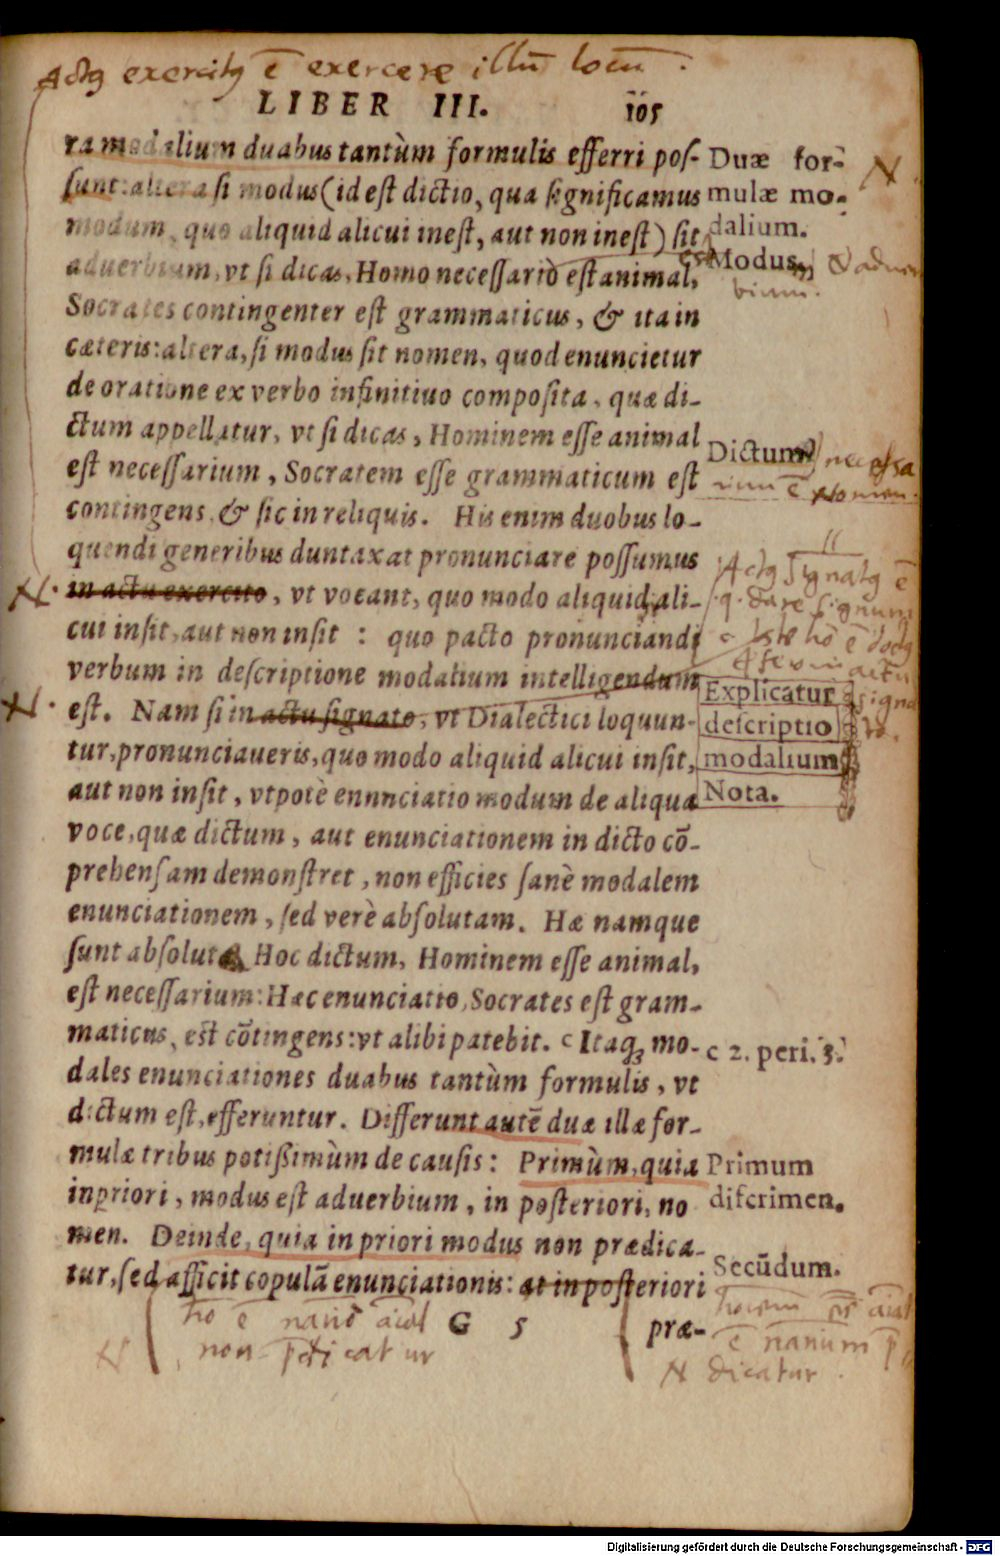 Actꝯ exercitꝯ ē exercere illū locū.
LIBER III. 105
ra modalium duabus tantùm formulis efferri pos-
sunt: altera si modus (id est dictio, qua significamus
modum, quo aliquid alicui inest, aut non inest) sit
aduerbium, vt si dicas, Homo necessariò est animal,
Socrates contingenter est grammaticus, & ita in
cæteris: altera, si modus sit nomen, quod enuncietur
de oratione ex verbo infinitiuo composita, quæ di-
ctum appellatur, vt si dicas, Hominem esse animal
est necessarium, Socratem esse grammaticum est
contingens, & sic in reliquis. His enim duobus lo-
quendi generibus duntaxat pronunciare possumus
in actu exercito, vt vocant, quo modo aliquid ali-
cui insit, aut non insit: quo pacto pronunciandi
verbum in descriptione modalium intelligendum
est. Nam si in actu signato, vt Dialectici loquun-
tur, pronunciaueris, quo modo aliquid alicui insit,
aut non insit, vtpotè ennnciatio modum de aliqua
voce, quæ dictum, aut enunciationem in dicto cō-
prehensam demonstret, non efficies sanè modalem
enunciationem, sed verè absolutam. Hæ namque
sunt absolutæ, Hoc dictum, Hominem esse animal,
est necessarium: Hæc enunciatio, Socrates est gram-
maticus, est cōtingens: vt alibi patebit. c Itaq; mo-
dales enunciationes duabus tantùm formulis, vt
dictum est, efferuntur. Differunt autē duæ illæ for-
mulæ tribus potißimùm de causis: Primùm, quia
in priori, modus est aduerbium, in posteriori, no
men. Deinde, quia in priori modus non prædica-
tur, sed afficit copulā enunciationis: at in posteriori
G 5 præ-
Duæ for-
mulæ mo-
dalium.
Modus est aduer
bium.
Dictum necessa
rium ē Nomen.
Actꝯ signatꝯ ē
dare signum
Iste hō ē doctꝯ
actu
signa
to.
Explicatur
descriptio
modalium
Nota.
c 2. peri. 3.
Primum
discrimen.
Secūdum.
hō ē nariō aial
non p̄dicatur
ē narium p̄
dicatur.
Digitalisierung gefördert durch die Deutsche Forschungsgemeinschaft - DFG